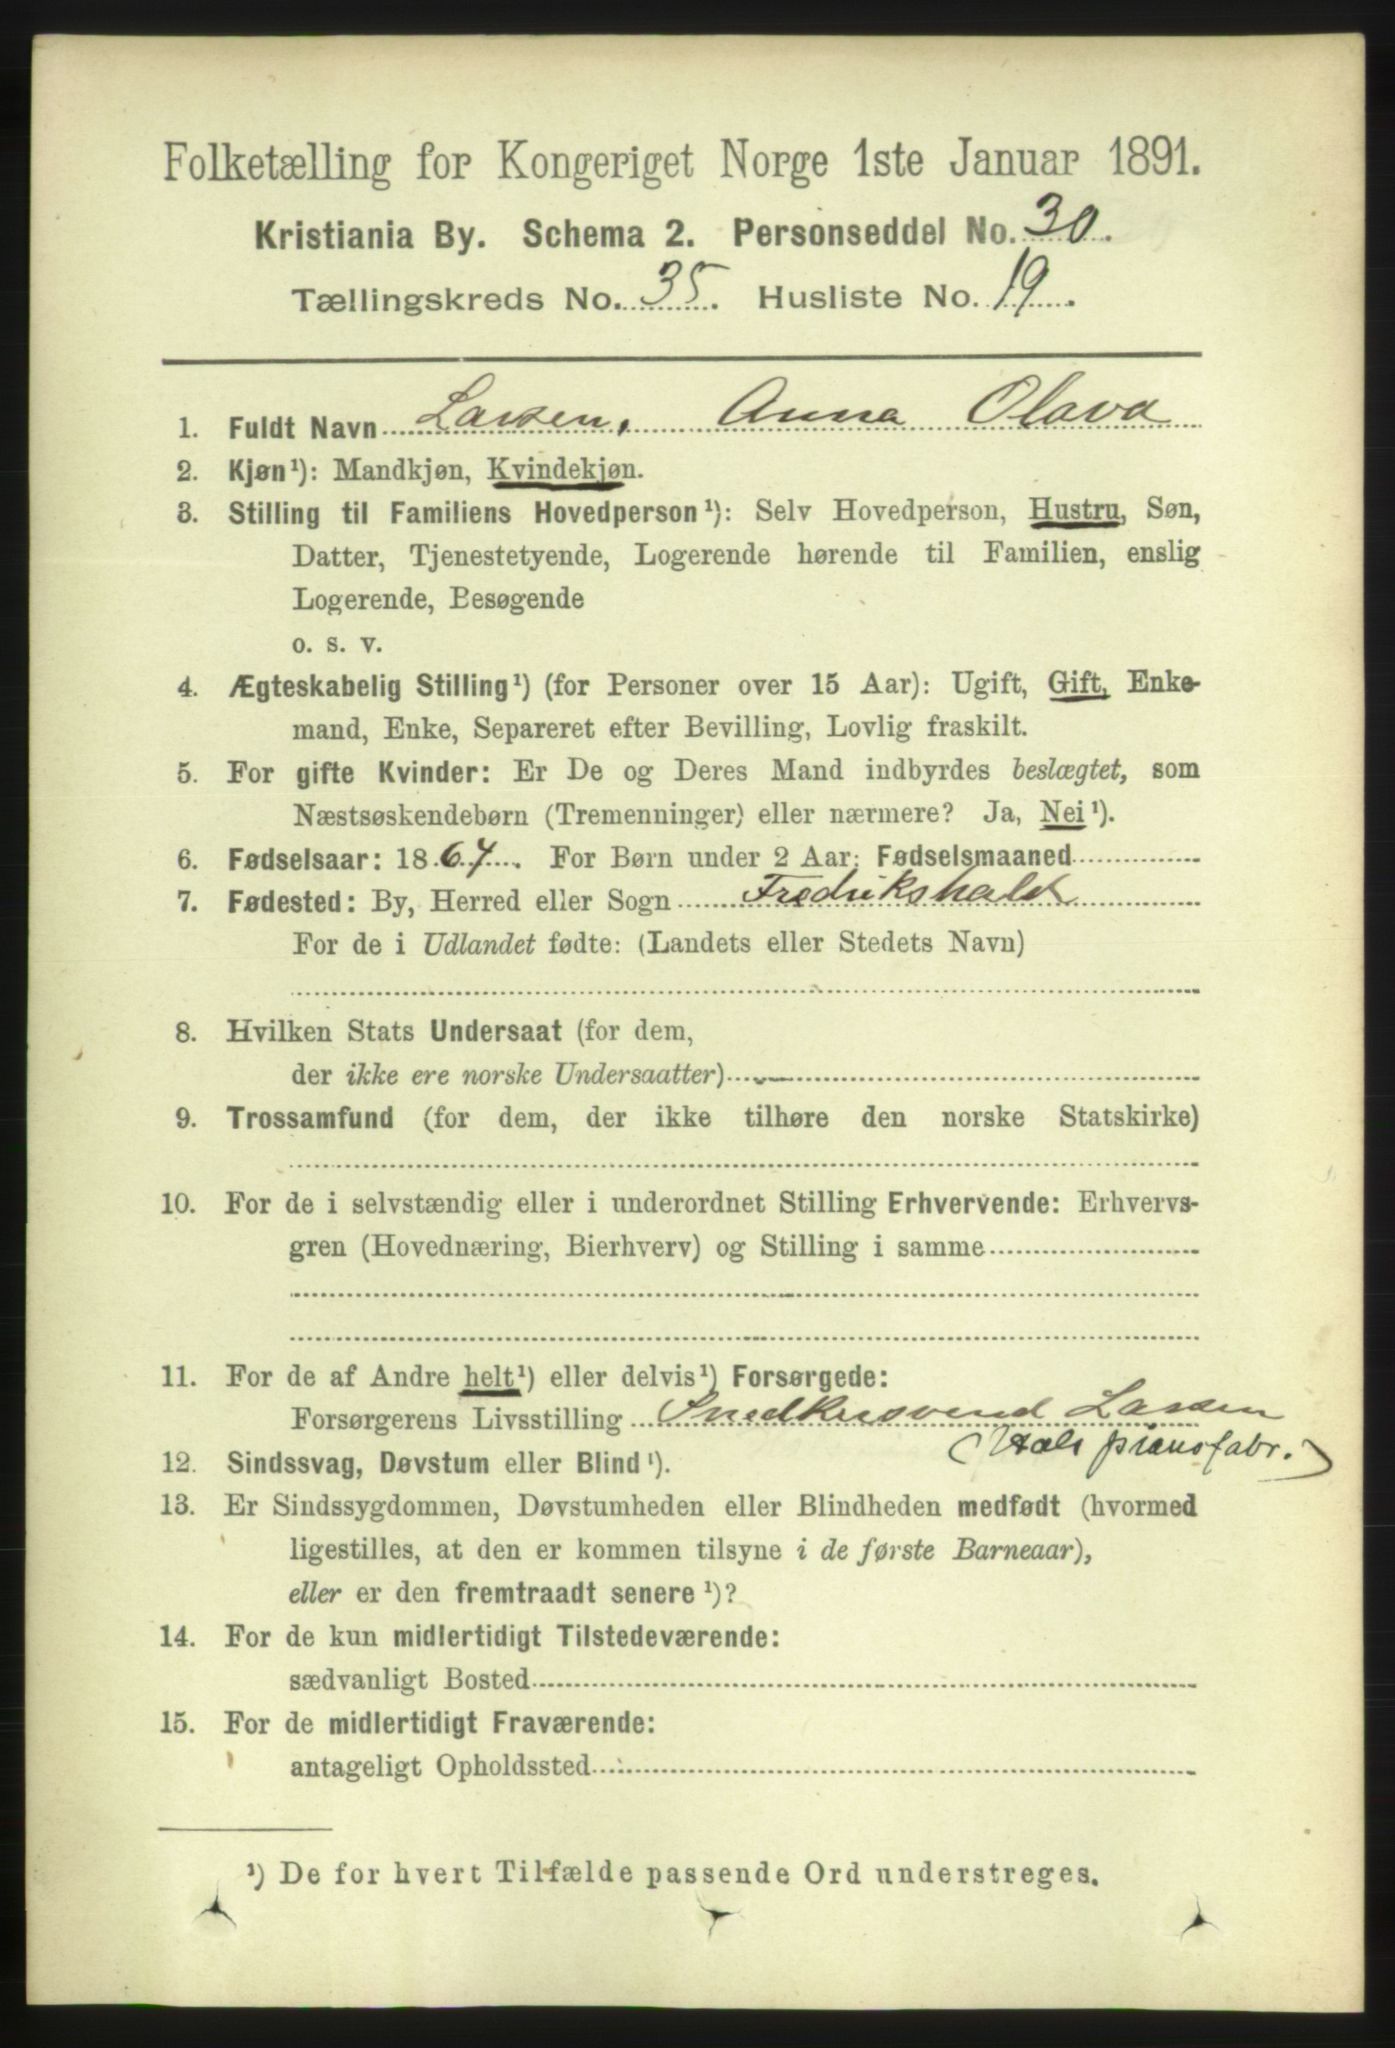 Folketælling for Kongeriget Norge 1ste Januar 1891.
Kristiania By. Schema 2. Personseddel No. 30.
Tællingskreds No. 35. Husliste No. 19.
1. Fuldt Navn Larsen, Anna Olava
2. Kjøn¹): Mandkjøn, Kvindekjøn.
3. Stilling til Familiens Hovedperson¹): Selv Hovedperson, Hustru, Søn,
Datter, Tjenestetyende, Logerende hørende til Familien, enslig
Logerende, Besøgende
o. s. v.
4. Ægteskabelig Stilling¹) (for Personer over 15 Aar): Ugift, Gift, Enke-
mand, Enke, Separeret efter Bevilling, Lovlig fraskilt.
5. For gifte Kvinder: Er De og Deres Mand indbyrdes beslægtet, som
Næstsøskendebørn (Tremenninger) eller nærmere? Ja, Nei¹).
6. Fødselsaar: 1867. For Børn under 2 Aar: Fødselsmaaned
7. Fødested: By, Herred eller Sogn Fredrikshald
For de i Udlandet fødte: (Landets eller Stedets Navn)
8. Hvilken Stats Undersaat (for dem,
der ikke ere norske Undersaatter)
9. Trossamfund (for dem, der ikke tilhøre den norske Statskirke)
10. For de i selvstændig eller i underordnet Stilling Erhvervende: Erhvervs-
gren (Hovednæring, Bierhverv) og Stilling i samme
11. For de af Andre helt¹) eller delvis¹) Forsørgede:
Forsørgerens Livsstilling Snedkersvend Larsen
(Hals pianofabr.)
12. Sindssvag, Døvstum eller Blind¹).
13. Er Sindssygdommen, Døvstumheden eller Blindheden medfødt (hvormed
ligestilles, at den er kommen tilsyne i de første Barneaar),
eller er den fremtraadt senere¹)?
14. For de kun midlertidigt Tilstedeværende:
sædvanligt Bosted
15. For de midlertidigt Fraværende:
antageligt Opholdssted
¹) De for hvert Tilfælde passende Ord understreges.